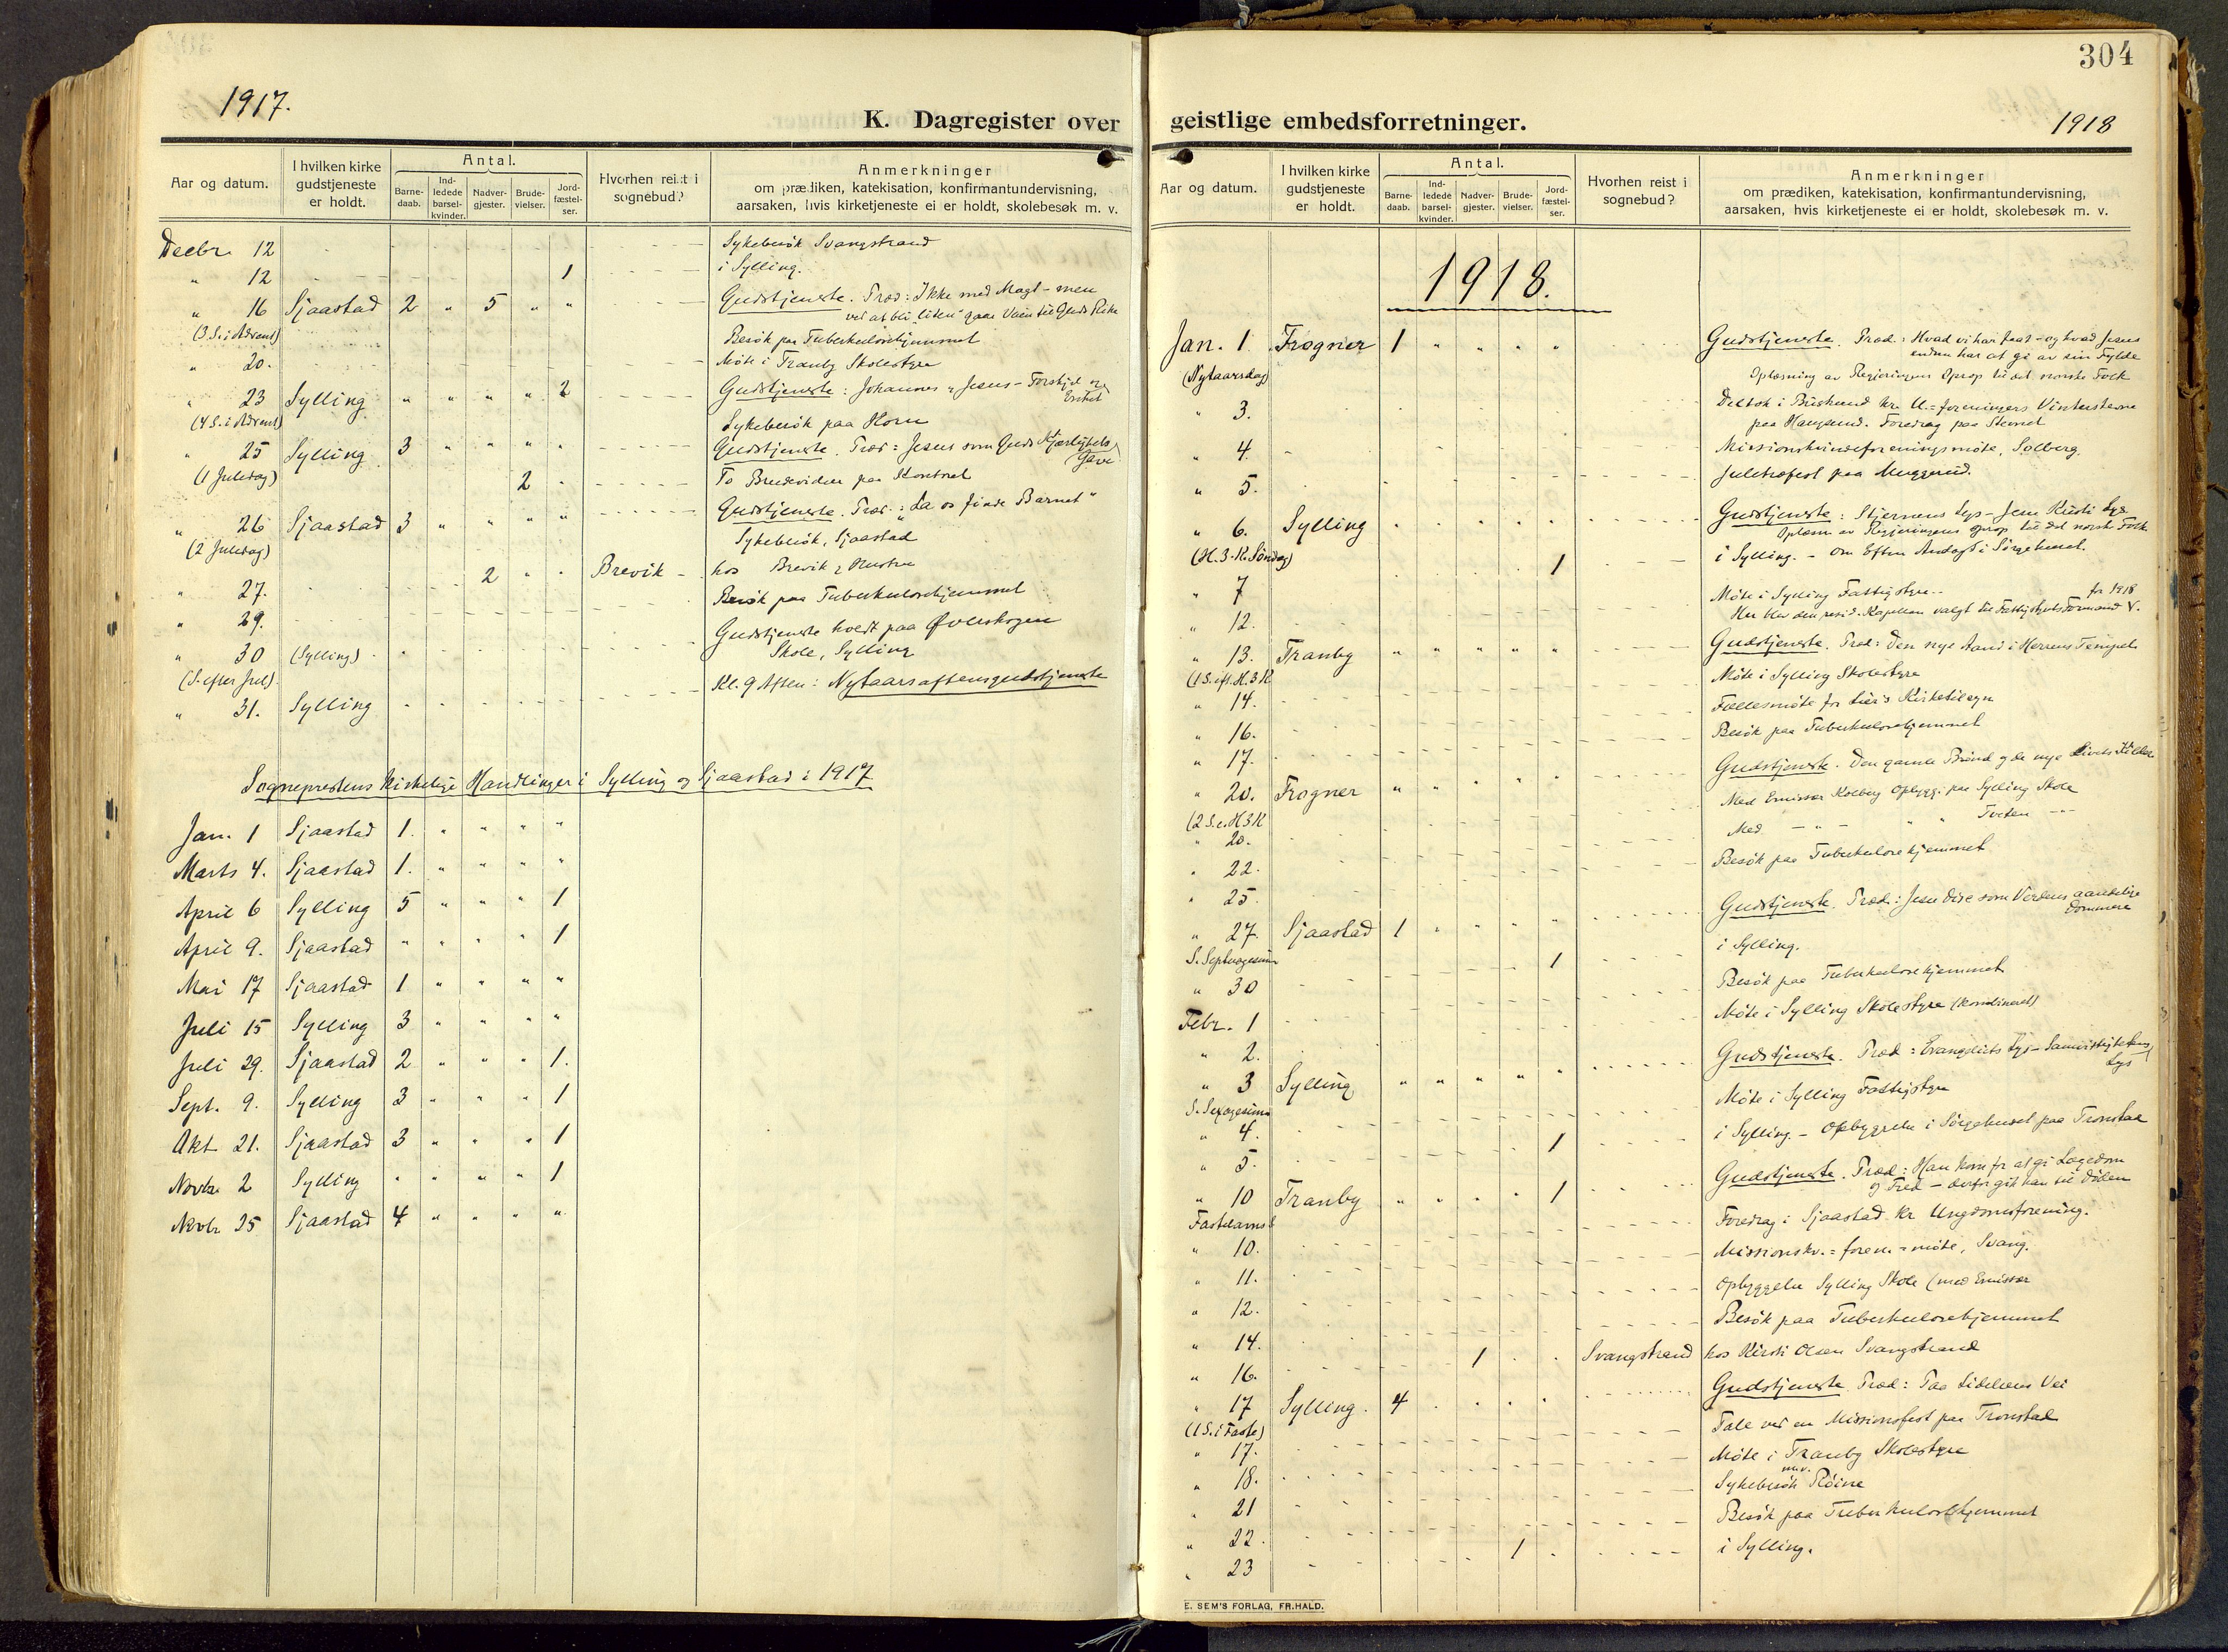 1917.
K. Dagregister over
Aar og datum.
I hvilken kirke gudstjeneste er holdt.
Antal.
Barne-daab.
Ind-ledede barsel-kvinder.
Nadver-gjester.
Brude-vielser.
Jord-fæstel-ser.
Hvorhen reist i sognebud?
Anmerkninger
om prædiken, katekisation, konfirmantundervisning,
aarsaken, hvis kirketjeneste ei er holdt, skolebesøk m. v.
Decbr. 12 Sykebesök Svangstrand
" 12 1 i Sylling.
" 16 Sjaastad 2 " 5 " " Gudstjeneste. Præd: Ikke med Magt - men
ved at bli "liten" gaar Veien til Guds Rike
(3 S. i Advent) Besök paa Tuberkulosehjemmet
" 20. Möte i Tranby Skolestyre
" 23 Sylling " " " " 2 Gudstjeneste: Johannes & Jesus - Forskjel og
Enhet
(4 S. i Advent) Sykebesök paa Horn
" 25 Sylling 3 " " " " Gudstjeneste. Præd: Jesus som Guds Kjærligheds
Gave
(1 Juledag) 2 To Brudevielser paa Kontoret
" 26 Sjaastad 3 " " " " Gudstjeneste. Præd.: "La os finde Barnet"
(2 Juledag) Sykebesök, Sjaastad
" 27. 2 " " Brevik hos Brevik & Hustru
" 29. Besök paa Tuberkulosehjemmet
" 30 (Sylling) Gudstjeneste holdt paa Øverskogen
Skole, Sylling
(S. efter Jul)
" 31. Sylling Kl. 9 Aften: Nytaarsaftensgudstjeneste
Sogneprestens kirkelige Handlinger i Sylling og Sjaastad i 1917
Jan. 1 Sjaastad 1. " " " "
Marts 4. Sjaastad 1. " " " "
April 6 Sylling 5 " " " 1
April 9. Sjaastad " " " " 1
Mai 17 Sjaastad 1 " " " "
Juli 15 Sylling 3 " " " "
Juli 29. Sjaastad 2 " " " 1.
Sept. 9. Sylling 3 " " " 1
Okt. 21. Sjaastad 3 " " " 1
Novbr. 2 Sylling " " " " 1
Novbr 25 Sjaastad 4 " " " "
304
geistlige embedsforretninger.
1918
Aar og datum.
I hvilken kirke gudstjeneste er holdt.
Antal.
Barne-daab.
Ind-ledede barsel-kvinder.
Nadver-gjester.
Brude-vielser.
Jord-fæstel-ser.
Hvorhen reist i sognebud?
Anmerkninger
om prædiken, katekisation, konfirmantundervisning,
aarsaken, hvis kirketjeneste ei er holdt, skolebesøk m. v.
1918.
Jan. 1. Frogner 1 " " " " Gudstjeneste. Præd.: Hvad vi har faat - og hvad Jesus
endnu har at gi av sin Fylde
(Nytaarsdag) Oplæsning av Regjeringens Oprop til det norske Folk
" 3. Deltok i Buskerud kr. U.=foreningers Vinterstevne
paa Haugsund. Foredrag paa Stevnet
" 4. Missionskvindeforeningsmöte, Solberg.
" 5. Juletræfest paa Muggerud.
" 6. Sylling Gudstjeneste: Stjernens Lys - Jesu Kristi Lys
Oplæsn. av Regjeringens oprop til det norske Folk
(H. 3. K. Söndag)
" 7 1 i Sylling. - Om Eften Andagt i Sörgehuset.
" 12. Möte i Sylling Fattigstyre - for 1918
Her blev den resid. Kapellan valgt til Fattigstyrets Formand
" 13. Tranby " " " " " Gudstjeneste. Præd: Den nye Aand i Herrens Tempel
(1 S. eft. H. 3 K
" 14. Möte i Sylling Skolestyre
" 16. Fællesmöte for Lier's Kirketilsyn
" 17. Besök paa Tuberkulosehjemmet
" 20. Frogner " " Gudstjeneste. Den gamle Brönd og de nye Livets Kilder
(2 S. e. H 3 K
" 20. Med Emissær Kolberg Opbygg. paa Sylling Skole
" 22. Med - " - " " Tveten - "
" 25. Besök paa Tuberkulosehjemmet
" 27. Sjaastad 1 " " " " Gudstjeneste. Præd.: Jesu Dise som Verdens aandelige
Dommere
S. Septuagesima 1 i Sylling.
" 30 Besök paa Tuberkulosehjemmet
Febr. 1 Möte i Sylling Skolestyre (kombineret)
" 2.
" 3 Sylling " " " " " Gudstjeneste. Præd: Evangeliets Lys - Samvittighetens
Lys
S. Sexagesima
" 4. Möte i Sylling Fattigstyre
" 5. 1 i Sylling. - Opbyggelse i Sörgehuset paa Tronstad
" 10 Tranby " " " " 1 Gudstjeneste. Præd: Han kom for at gi Lægedom
og Fred - derfor gik han til Döden
Fastelavns S
" 10. Foredrag i Sjaastad kr Ungdomsforening.
" 11. Missionskv.=foren.=möte, Svang.
" 12. Opbyggelse Sylling Skole (med Emissær
" 14. Besök paa Tuberkulosehjemmet
" 16. 1 Svangstrand hos Kirsti Olsen Svangstrand
" 17 Sylling. 4 Gudstjeneste. Præd: Paa Lidelsens Vei
(1 S. i Faste)
" 17. Tale ved en Missionsfest paa Tronstad
" 18. Möte i Tranby Skolestyre
" 21 Sykebesök Röine
" 22. Besök paa Tuberkulosehjemmet
" 23 1 i Sylling.
E. SEM'S FORLAG, FR.HALD.